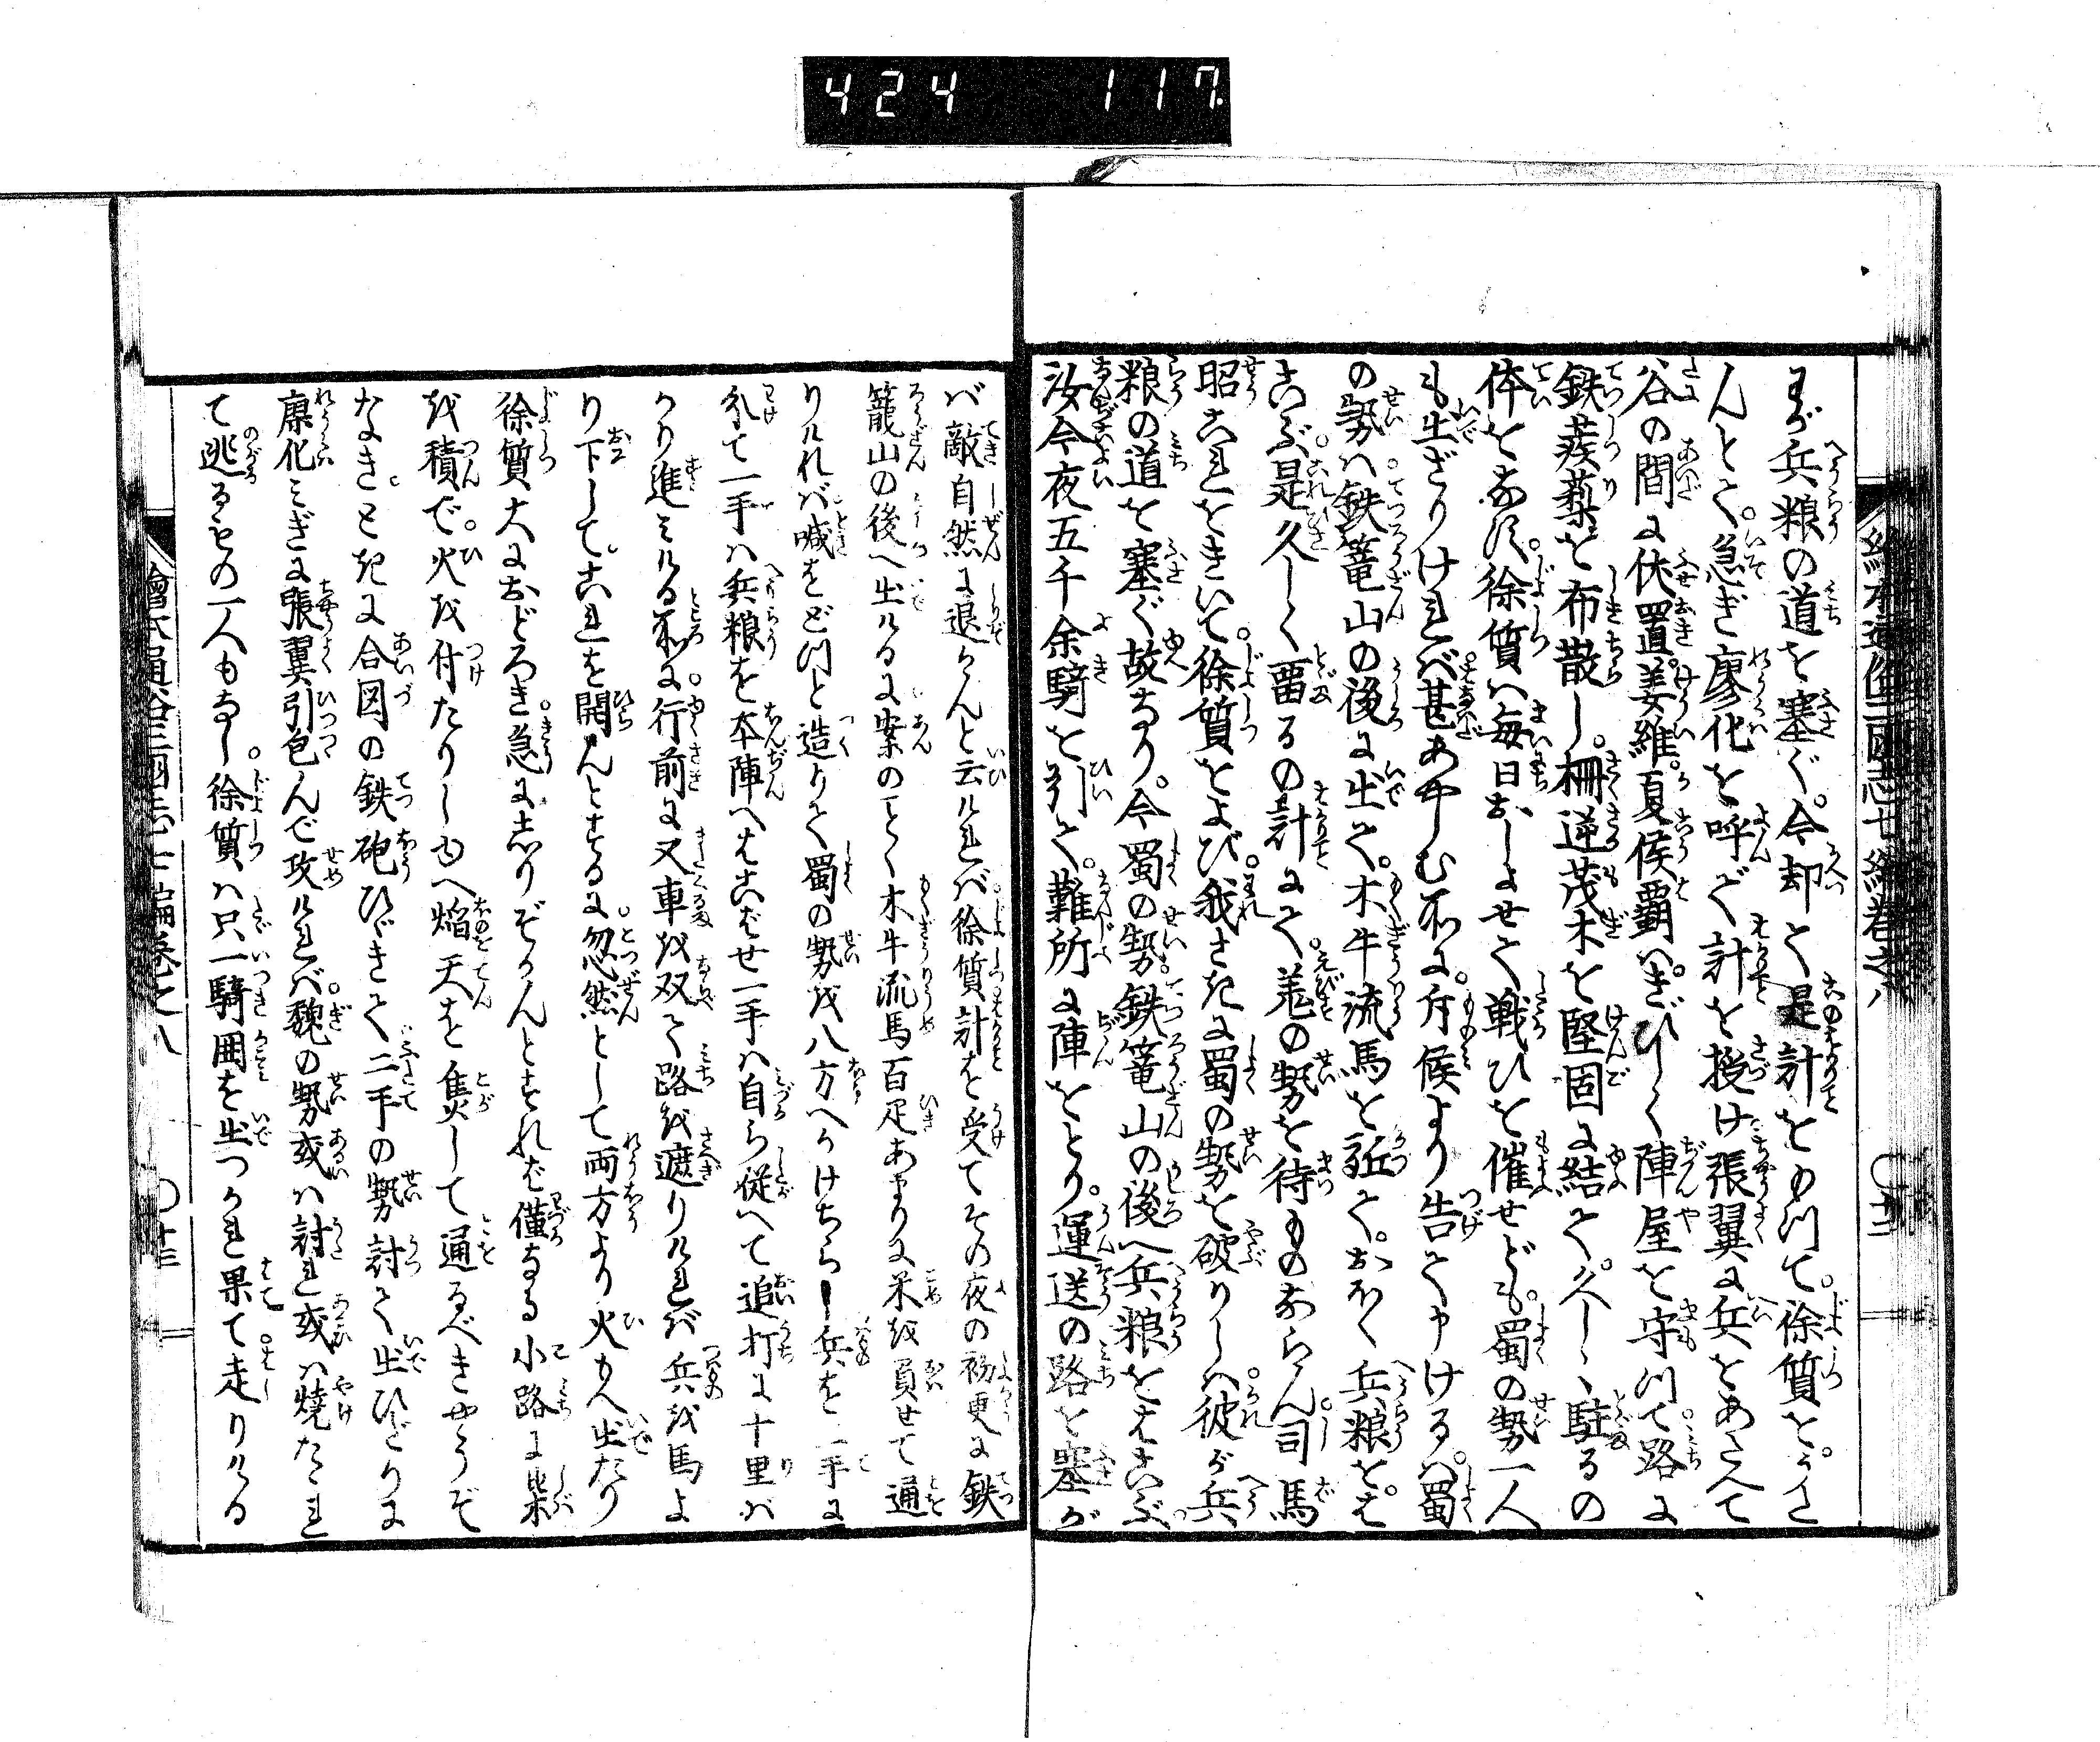 424 117
わが兵粮の道を塞ぐ。今却て是計をもつて。徐質をうた
んとて。急ぎ廖化を呼で計を授け張翼に兵をあたへて
谷の間に伏置。姜維。夏侯覇は。きびしく陣屋を守つて路に
鉄蒺藜を布散し。柵逆茂木を堅固に結て。久しく駐るの
体をなす。徐質は毎日おしよせて戦ひを催せども。蜀の勢一人
も出ざりければ。甚あやしむ所に。斥候より告て申けるは。蜀
の勢は。鉄篭山の後に出て。木牛流馬を
以て。おほく兵粮をは
こぶ。是久しく畱るの計にて。羗の勢を待ものならん。司馬
昭これをきいて。徐質をよび。我さきに蜀の勢を破りしは。彼が兵
粮の道を塞ぐ故なり。今蜀の勢。鉄篭山の後へ兵粮をはこぶ。
汝今夜五千余騎を引て。難所に陣をとり。運送の路を塞が
ば敵自然に退かんと云ければ。徐質計を受てその夜の初更に鉄
籠山の後へ出けるに案のごとく木牛流馬百疋あまりに米を負せて通
りければ喊をどつと造りて蜀の勢を八方へかけちらし兵を二手に
分て一手は兵粮を本陣へはこばせ一手は自ら従へて追打に十里ば
かり進みける所に。行前に又車を双て路を遮りければ兵を馬よ
り下して。これを開んとするに。忽然として両方より火もへ出たり
徐質大におどろき。急にしりぞかんとすれば僅なる小路に柴
を積で。火を付たりしゆへ焔天を焦して通るべきやうぞ
なき。ときに合図の鉄砲ひゞきて二手の勢討て出ひだりに
廖化みぎに張翼引包んで攻ければ。魏の勢或は討れ或は焼たゝれ
て逃るもの一人もなし。徐質は只一騎囲を出つかれ果て。走りける